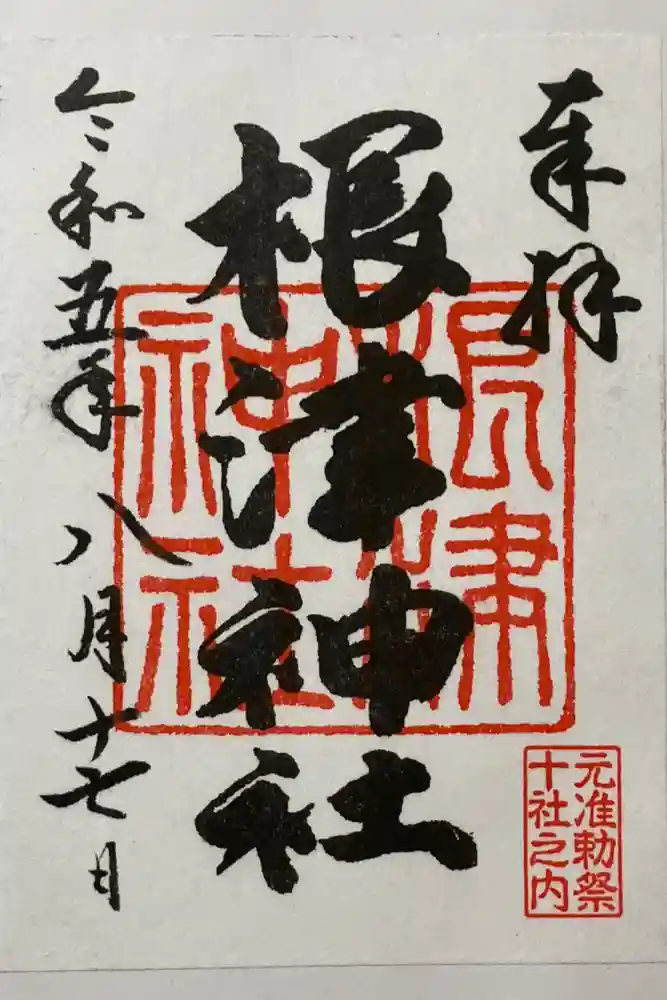 奉拝
根津神社
根津
神社
元准勅祭
十社之内
令和五年八月十七日